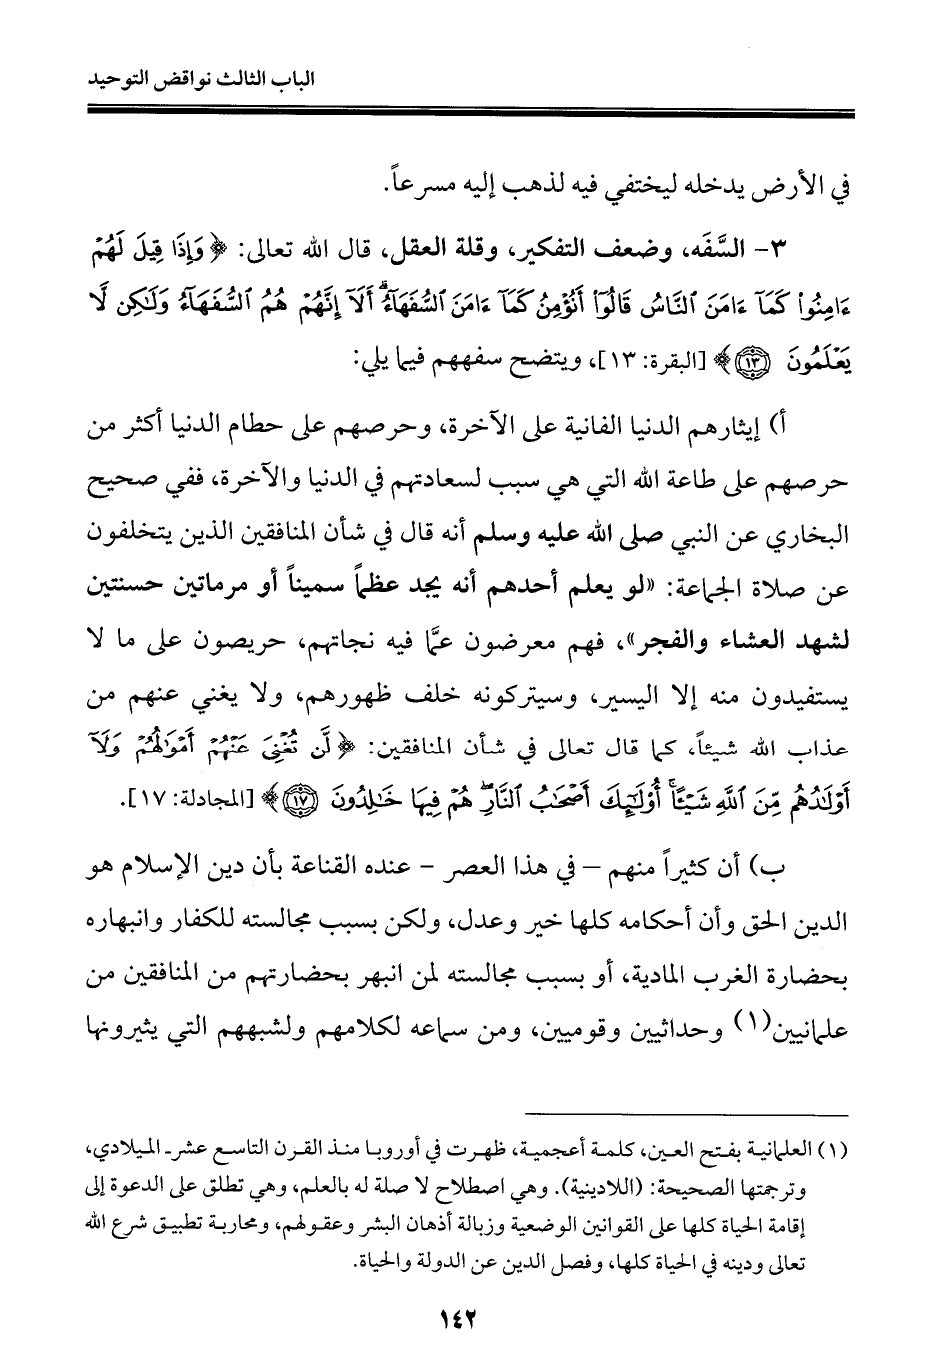 الباب الثالث نواقض التوحيد
في الأرض يدخله ليختفي فيه لذهب إليه مسرعاً.
٣- السَّفَه، وضعف التفكير، وقلة العقل، قال الله تعالى: ﴿ وَإِذَا قِيلَ لَهُمْ
ءَامِنُواْ كَمَآ ءَامَنَ ٱلنَّاسُ قَالُوٓاْ أَنُؤْمِنُ كَمَآ ءَامَنَ ٱلسُّفَهَآءُ ۗ أَلَآ إِنَّهُمْ هُمُ ٱلسُّفَهَآءُ وَلَٰكِن لَّا
يَعْلَمُونَ ﴿١٣﴾ ﴾ [البقرة: ١٣]، ويتضح سفههم فيما يلي:
أ) إيثارهم الدنيا الفانية على الآخرة، وحرصهم على حطام الدنيا أكثر من
حرصهم على طاعة الله التي هي سبب لسعادتهم في الدنيا والآخرة، ففي صحيح
البخاري عن النبي صلى الله عليه وسلم أنه قال في شأن المنافقين الذين يتخلفون
عن صلاة الجماعة: «لو يعلم أحدهم أنه يجد عظماً سميناً أو مرماتين حسنتين
لشهد العشاء والفجر»، فهم معرضون عمَّا فيه نجاتهم، حريصون على ما لا
يستفيدون منه إلا اليسير، وسيتركونه خلف ظهورهم، ولا يغني عنهم من
عذاب الله شيئاً، كما قال تعالى في شأن المنافقين: ﴿ لَّن تُغْنِىَ عَنْهُمْ أَمْوَٰلُهُمْ وَلَآ
أَوْلَٰدُهُم مِّنَ ٱللَّهِ شَيْـًٔا ۚ أُوْلَٰٓئِكَ أَصْحَٰبُ ٱلنَّارِ ۖ هُمْ فِيهَا خَٰلِدُونَ ﴿١٧﴾ ﴾ [المجادلة: ١٧].
ب) أن كثيراً منهم – في هذا العصر – عنده القناعة بأن دين الإسلام هو
الدين الحق وأن أحكامه كلها خير وعدل، ولكن بسبب مجالسته للكفار وانبهاره
بحضارة الغرب المادية، أو بسبب مجالسته لمن انبهر بحضارتهم من المنافقين من
علمانيين(١) وحداثيين وقوميين، ومن سماعه لكلامهم ولشبههم التي يثيرونها
(١) العلمانية بفتح العين، كلمة أعجمية، ظهرت في أوروبا منذ القرن التاسع عشر الميلادي،
وترجمتها الصحيحة: (اللادينية). وهي اصطلاح لا صلة له بالعلم، وهي تطلق على الدعوة إلى
إقامة الحياة كلها على القوانين الوضعية وزبالة أذهان البشر وعقولهم، ومحاربة تطبيق شرع الله
تعالى ودينه في الحياة كلها، وفصل الدين عن الدولة والحياة.
١٤٢